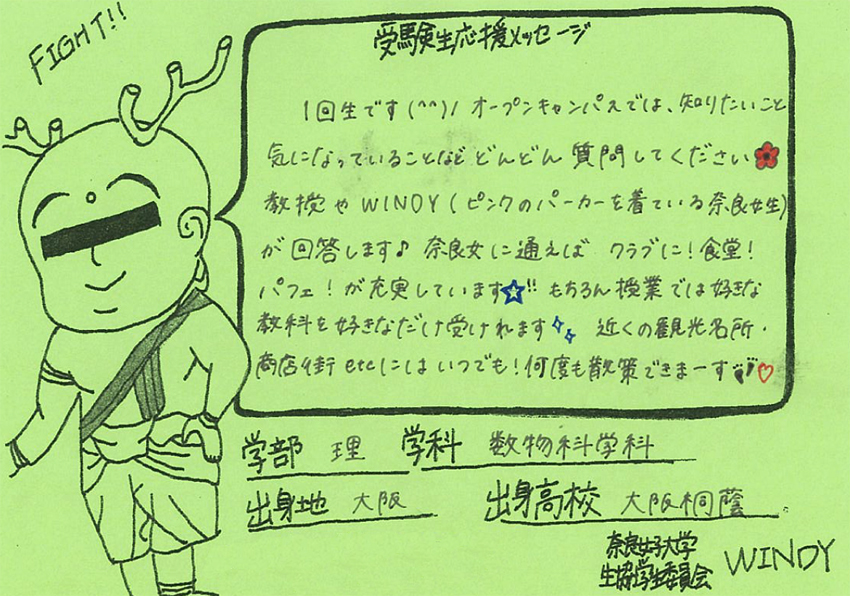 FIGHT!!
受験生応援メッセージ
1回生です(^^)/ オープンキャンパスでは、知りたいこと
気になっていることなど どんどん 質問してください
教授や WINDY (ピンクのパーカーを着ている奈良女生)
が 回答します♪ 奈良女に通えば クラブに!食堂!
パフェ!が充実しています☆!! もちろん授業では好きな
教科を好きなだけ受けれます 近くの観光名所・
商店街 etcにはいつでも!何度も散策できまーす♡
学部 理 学科 数物科学科
出身地 大阪 出身高校 大阪桐蔭
奈良女子大学
生協学生委員会 WINDY